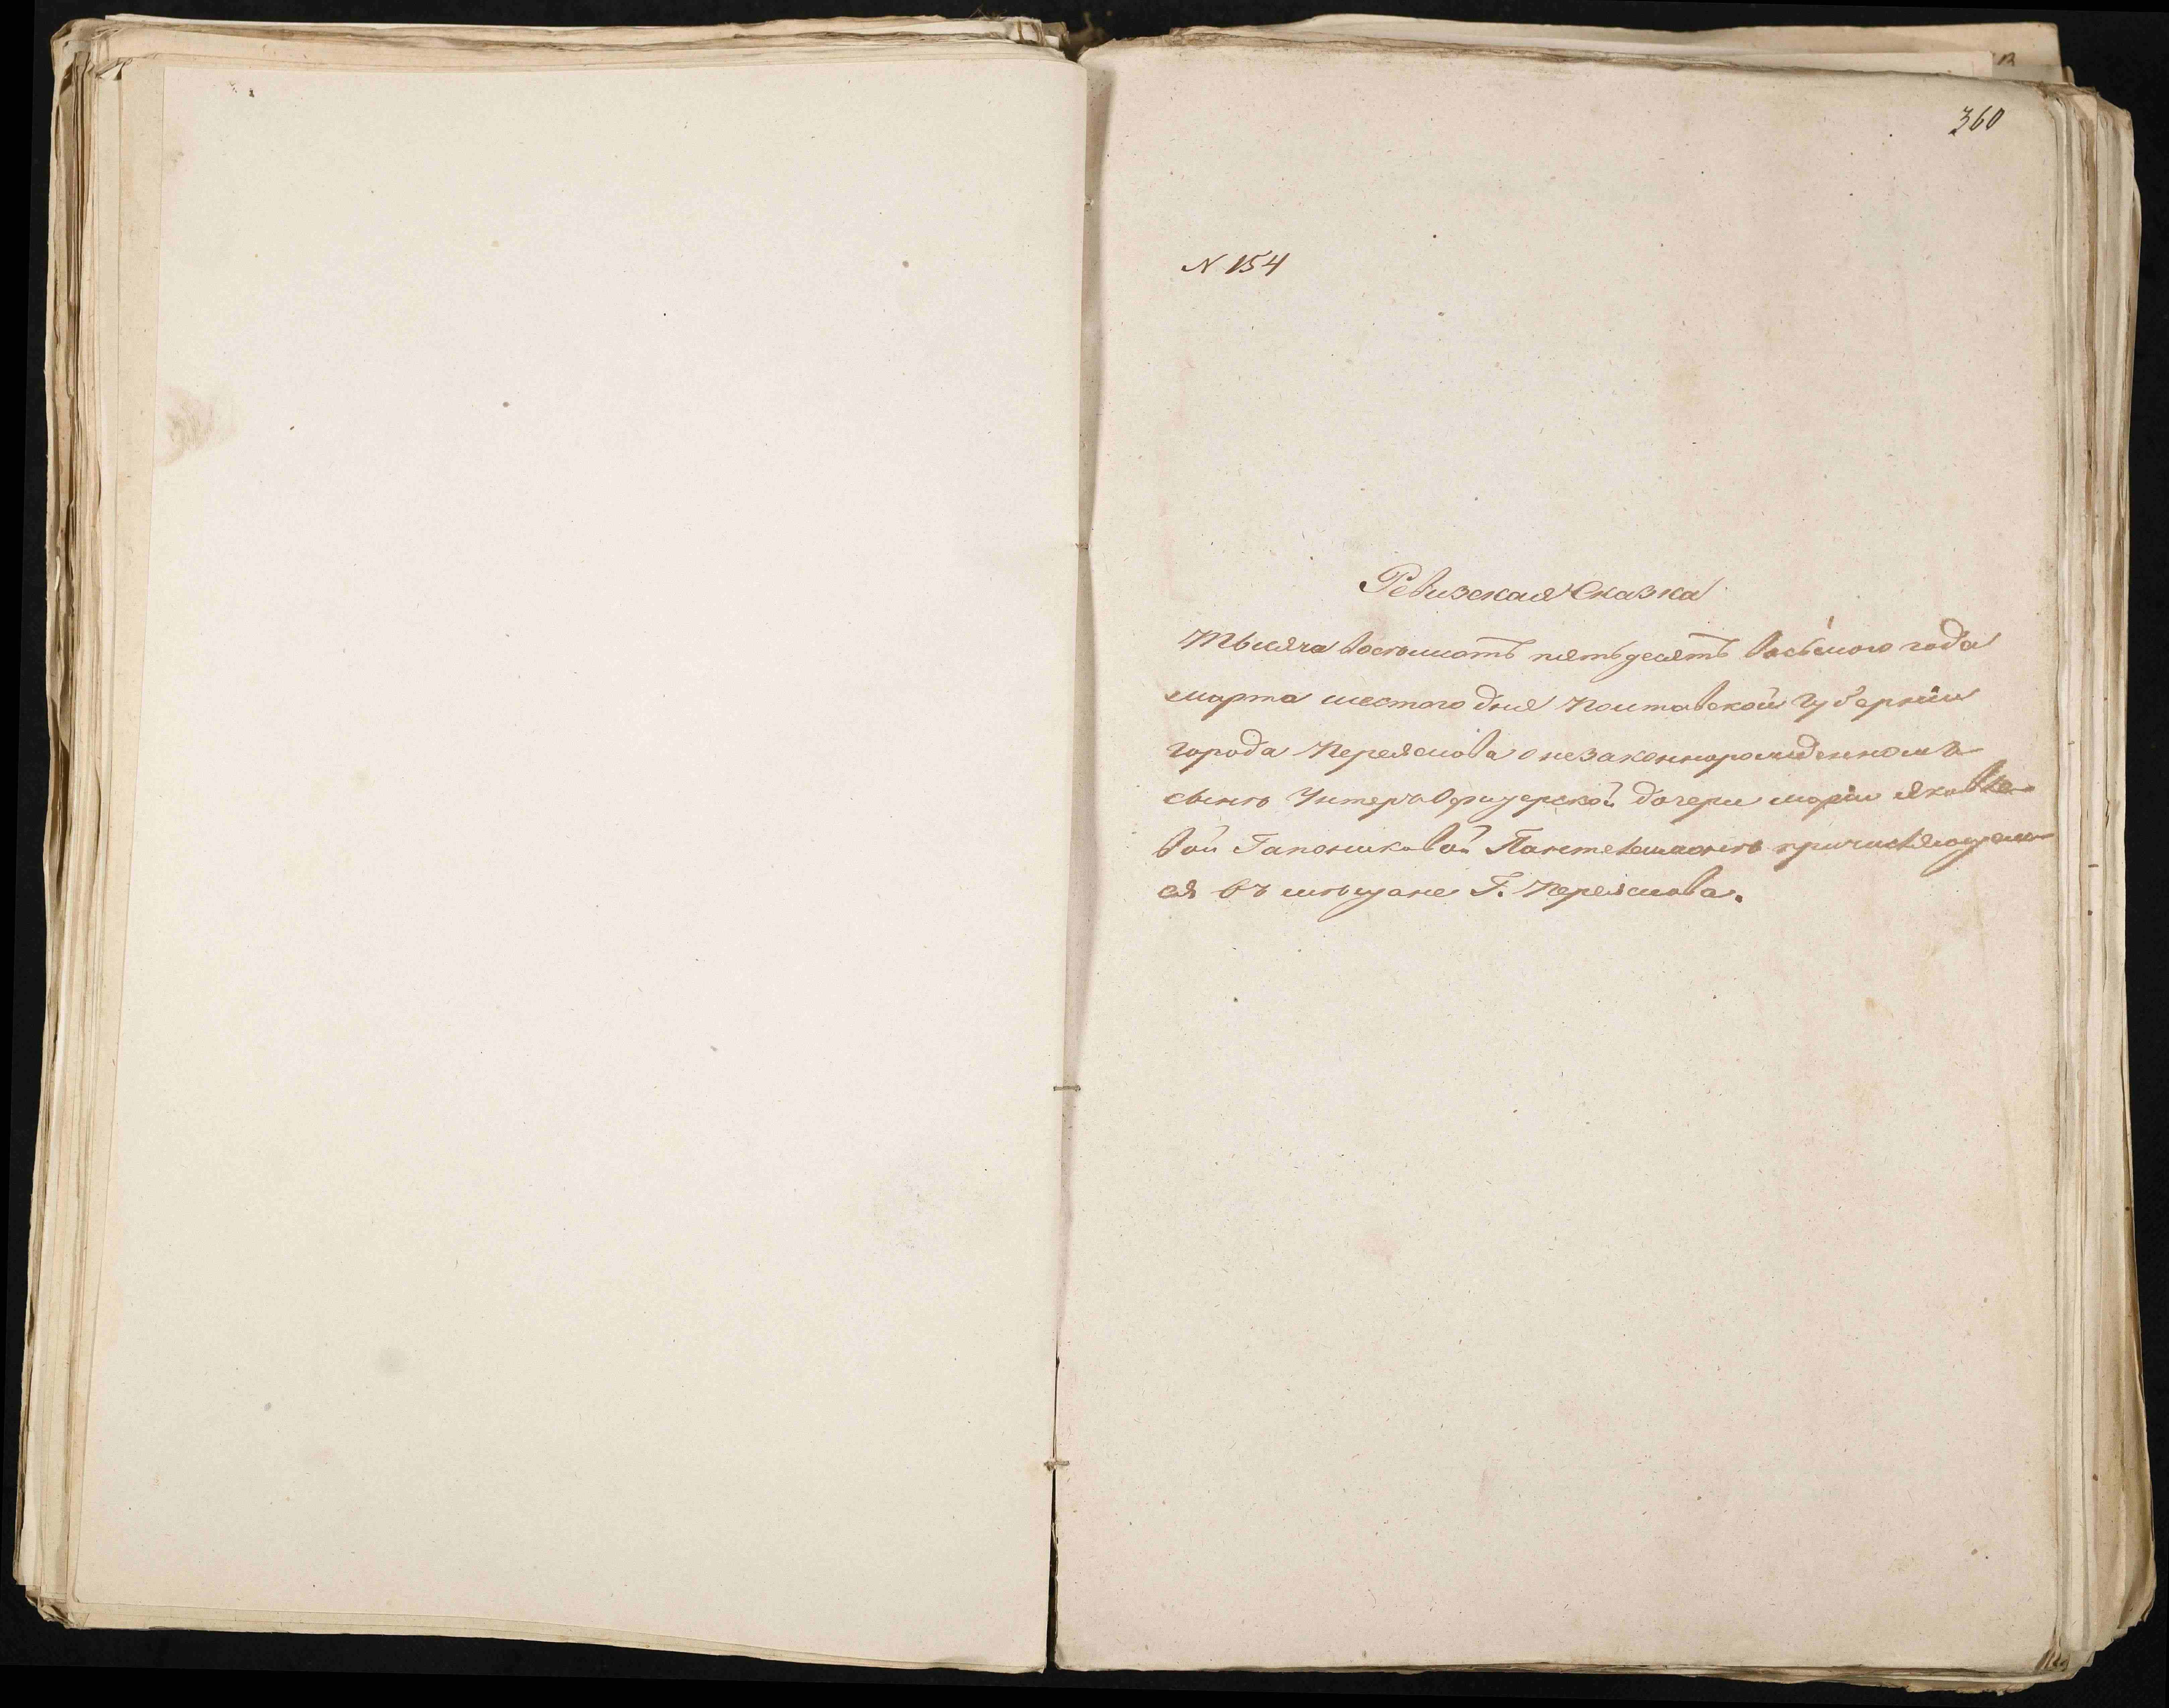 360
N 154
Ревизская Сказка
Тысяча восемсотъ пятьдесятъ восьмого года
марта шестого дня Полтавской Губерніи
города Переяслова о незаконнорожденномъ
сынѣ Унтеръ Офицерской дочери маріи яковле-
вой Гапониковой Пантелимонѣ причисляющем-
ся въ мѣщане Г. Переяслова.